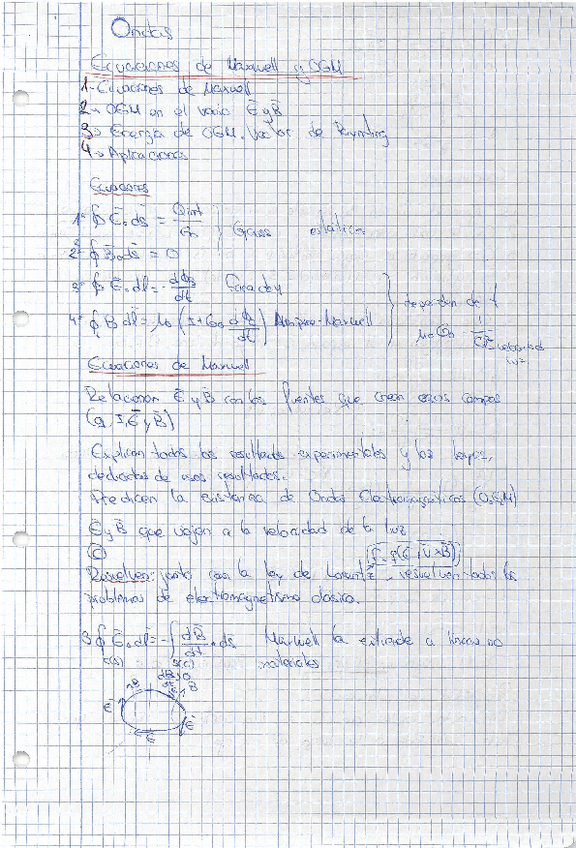 Ondas
Ecuaciones de Maxwell y OEM
1- Ecuaciones de Maxwell
2→ OEM en el vacío E⃗ y B⃗
3→ Energía de OEM. Vector de Poynting
4→ Aplicaciones
Ecuaciones
1ª ∮ E⃗ o ds⃗ = Qint/ε₀ } Gauss estática
2ª ∮ B⃗ o ds⃗ = 0
3ª ∮ E⃗ o dl⃗ = - dΦB/dt Faraday
4ª ∮ B⃗ dl⃗ = μ₀ (I + ε₀ dΦE/dt) Ampère-Maxwell } dependen de t
μ₀ε₀ = 1/c² velocidad luz
Ecuaciones de Maxwell
Relacionan E⃗ y B⃗ con las fuentes que crean esos campos
(q, I, E⃗ y B⃗)
Explican todos los resultados experimentales y las leyes,
dedicadas de esos resultados.
Predicen la existencia de Ondas Electromagnéticas (OEM)
E⃗ y B⃗ que viajan a la velocidad de la luz
(c)
(F⃗ = q(E⃗ + v⃗ × B⃗))
Resuelven: junto con la ley de Lorentz, resuelven todos los
problemas de electromagnetismo clásico.
3 ∮ E⃗ o dl⃗ = - ∫ dB⃗/dt o ds⃗ Maxwell la extiende a líneas no
c(s) s(c) materiales
dB/dt > 0
B⃗
E⃗ E⃗
E⃗